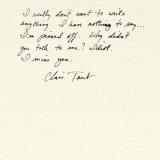 I really don't want to write
anything. I have nothing to say...
I'm pissed off. Why didn't
you talk to me? Idiot.
I miss you.
Chris Tant